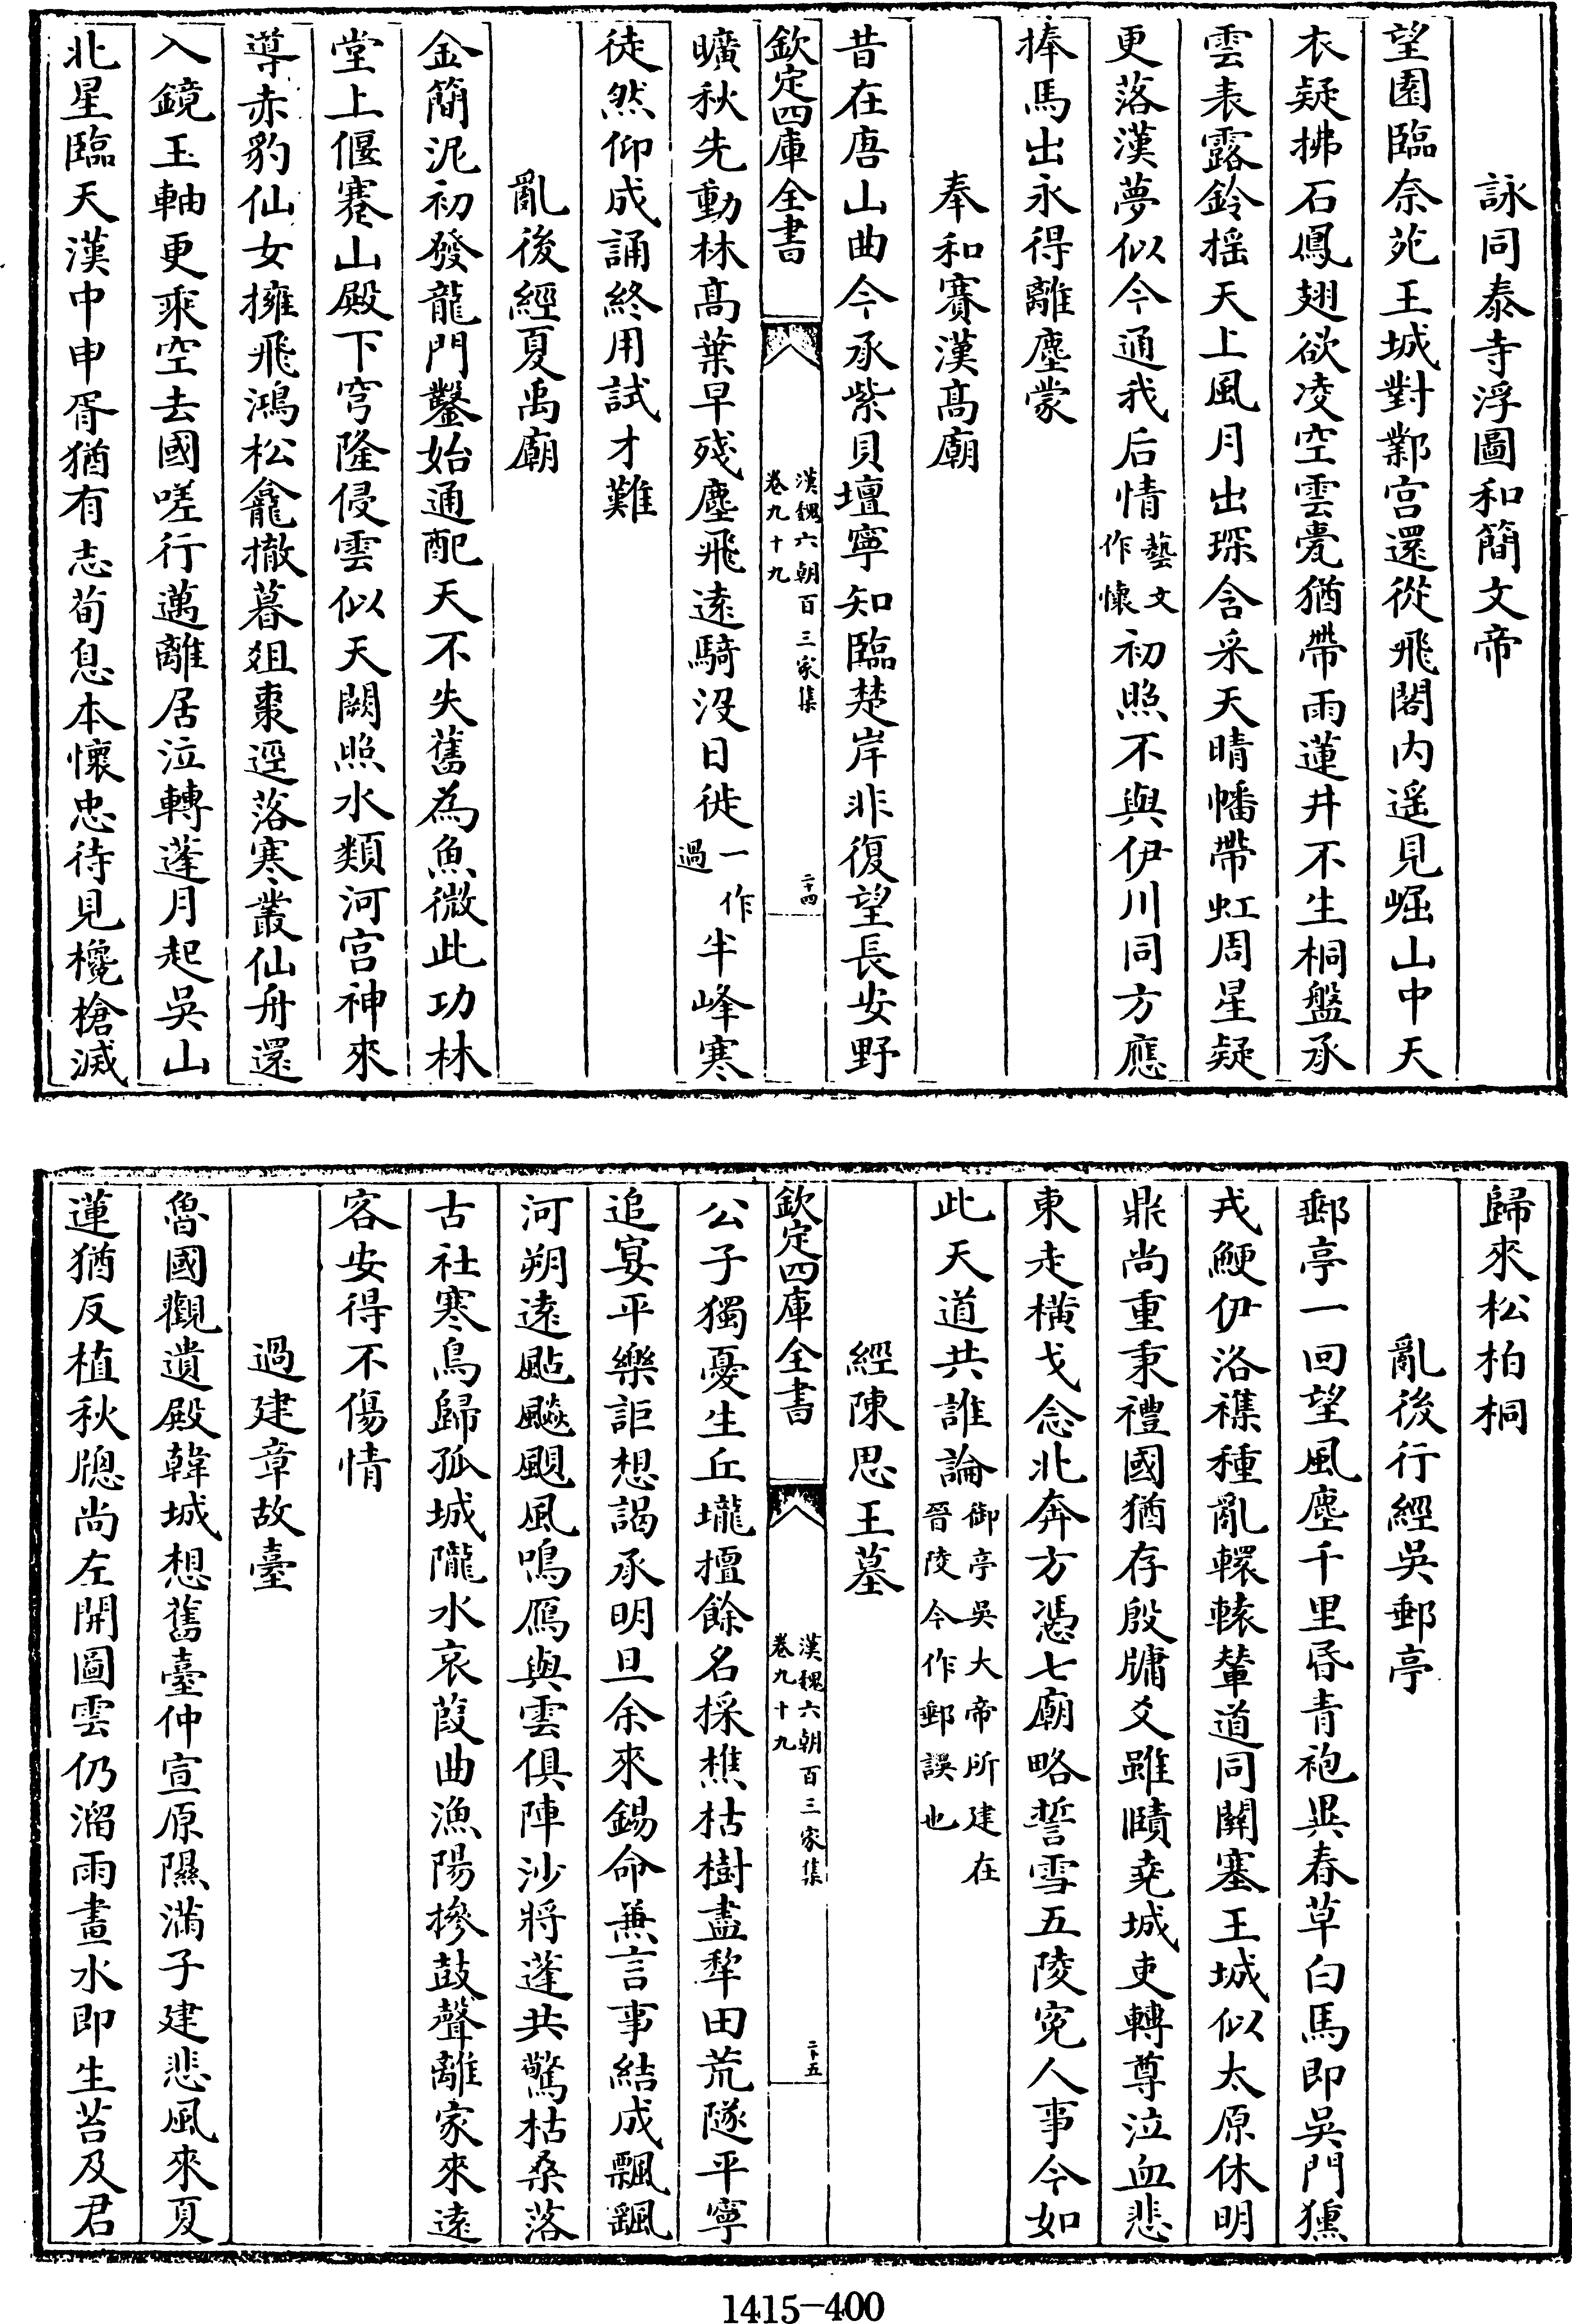 詠同泰寺浮圖和簡文帝
望園臨奈苑王城對鄴宫還從飛閣内遥見崛山中天
衣疑拂石鳳翅欲凌空雲甍猶帶雨蓮井不生桐盤承
雲表露鈴摇天上風月出琛含采天晴幡帶虹周星疑
更落漢夢似今通我后情藝文作懷初照不與伊川同方應
捧馬出永得離塵蒙
奉和賽漢髙廟
昔在唐山曲今承紫貝壇寧知臨楚岸非復望長安野
欽定四庫全書
漢魏六朝百三家集
卷九十九
二十四
曠秋先動林髙葉早殘塵飛逺騎没日徙一作過半峰寒
徒然仰成誦終用試才難
亂後經夏禹廟
金簡泥初發龍門鑿始通配天不失舊為魚微此功林
堂上偃蹇山殿下穹隆侵雲似天闕照水類河宫神來
導赤豹仙女擁飛鴻松龕撤暮俎棗逕落寒叢仙舟還
入鏡玉軸更乘空去國嗟行邁離居泣轉蓬月起吳山
北星臨天漢中申胥猶有志荀息本懷忠待見欃槍滅
歸來松柏桐
亂後行經吳郵亭
郵亭一回望風塵千里昏青袍異春草白馬即吳門獯
戎鯁伊洛襍種亂轘轅輦道同關塞王城似太原休明
鼎尚重秉禮國猶存殷牖爻雖賾堯城吏轉尊泣血悲
東走橫戈念北奔方憑七廟略誓雪五陵寃人事今如
此天道共誰論御亭吳大帝所建在晉陵今作郵誤也
經陳思王墓
欽定四庫全書
漢魏六朝百三家集
卷九十九
二十五
公子獨憂生丘壠擅餘名採樵枯樹盡犂田荒隧平寧
追宴平樂詎想謁承明旦余來錫命兼言事結成飄颻
河朔逺颭飇颶風鳴鴈與雲俱陣沙將蓬共驚枯桑落
古社寒鳥歸孤城隴水哀葭曲漁陽摻鼓聲離家來逺
客安得不傷情
過建章故臺
魯國觀遺殿韓城想舊臺仲宣原隰滿子建悲風來夏
蓮猶反植秋牕尚左開圖雲仍溜雨畫水即生苔及君
1415-400